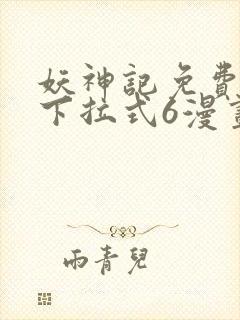 妖神記免費
下拉式6漫畫
雨青兒